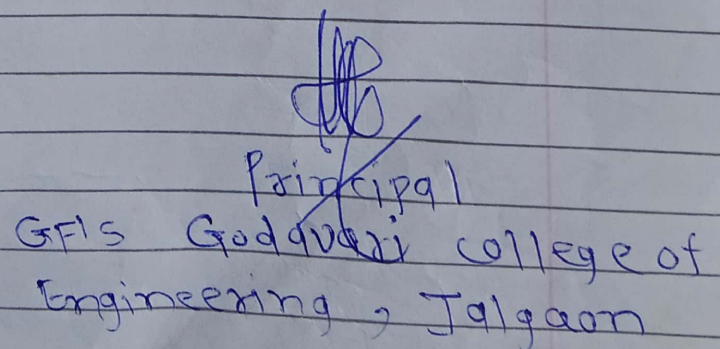 Principal
GF's Godavari college of
Engineering, Jalgaon